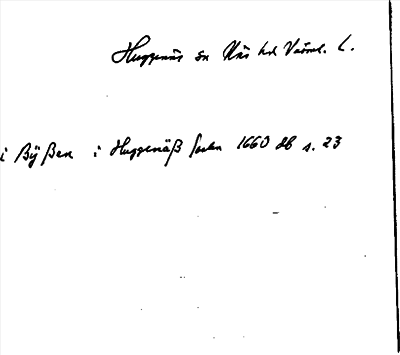 Huggenäs sn Näs hd Värml. L.
i Bÿßen i Huggenäß sochn 1660 db s. 23